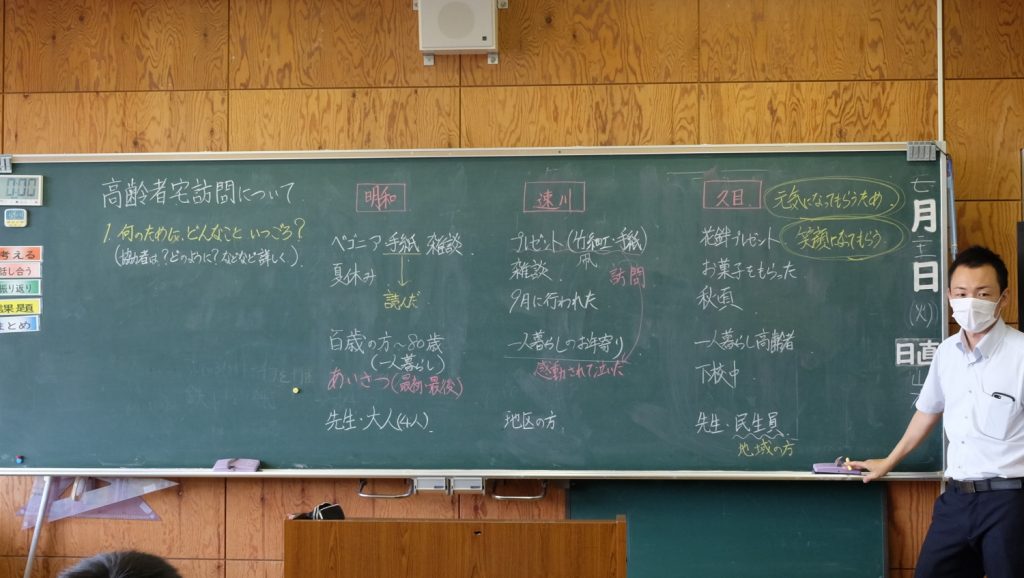 高齢者宅訪問について
1. 何のために、どんなこと いつころ?
(協力者は?どのように?などなど詳しく)
明和
ベゴニア 手紙 雑談
読んだ
夏休み
百歳の方~80歳
(一人暮らし)
あいさつ(最初・最後)
先生・大人(4人)
速川
プレゼント(竹細工・手紙)
訪問
雑談
9月に行われた
一人暮らしのお年寄り
感動されて泣いた
地区の方
久目
元気になってもらうため
笑顔になってもらう
花針プレゼント
お菓子をもらった
秋頃
一人暮らし高齢者
下校中
先生・民生員
地域の方
七月
日
(火)
日直
0:00
考える
話し合う
振り返り
まとめ